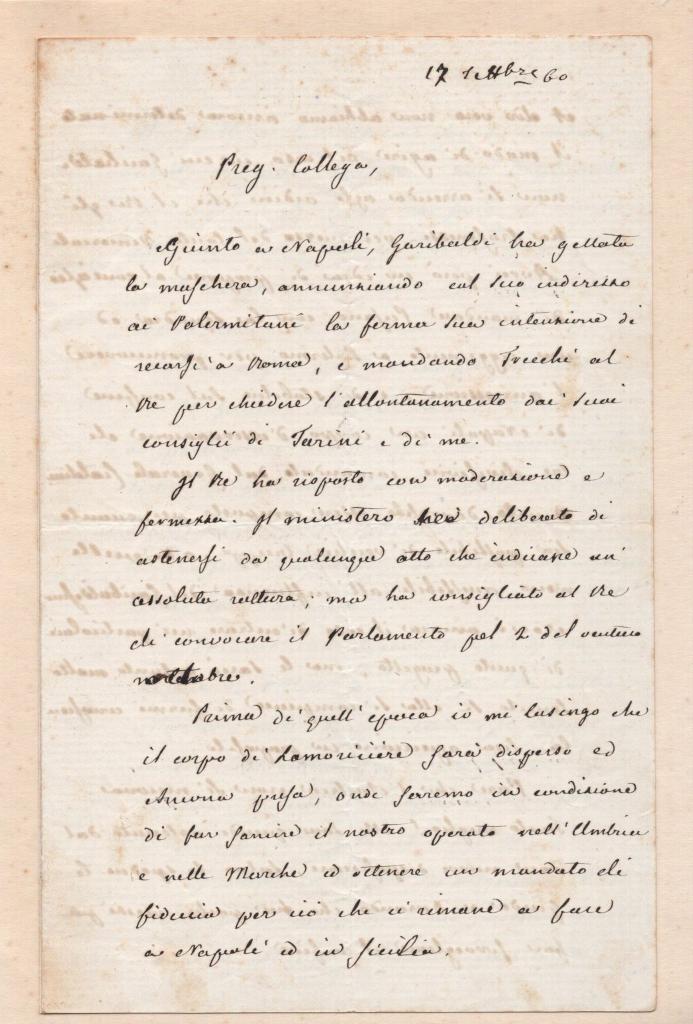 17 settbre 60
Preg. Collega,
Giunto a Napoli, Garibaldi ha gettata
la maschera, annunziando col suo indirizzo
ai Palermitani la ferma sua intenzione di
recarsi a Roma, e mandando Trecchi al
Re per chiedere l'allontanamento dai suoi
consiglii di Farini e di me.
Il Re ha risposto con moderazione e
fermezza. Il ministero ha deliberato di
astenersi da qualunque atto che indicasse un'
assoluta rottura; ma ha consigliato al Re
di convocare il Parlamento pel 2 del venturo
ottobre.
Prima di quell'epoca io mi lusingo che
il corpo di Lamoricière sarà disperso ed
Ancona presa, onde saremo in condizione
di far sancire il nostro operato nell'Umbria
e nelle Marche ed ottenere un mandato di
fiducia per ciò che ci rimane a fare
a Napoli ed in Sicilia.